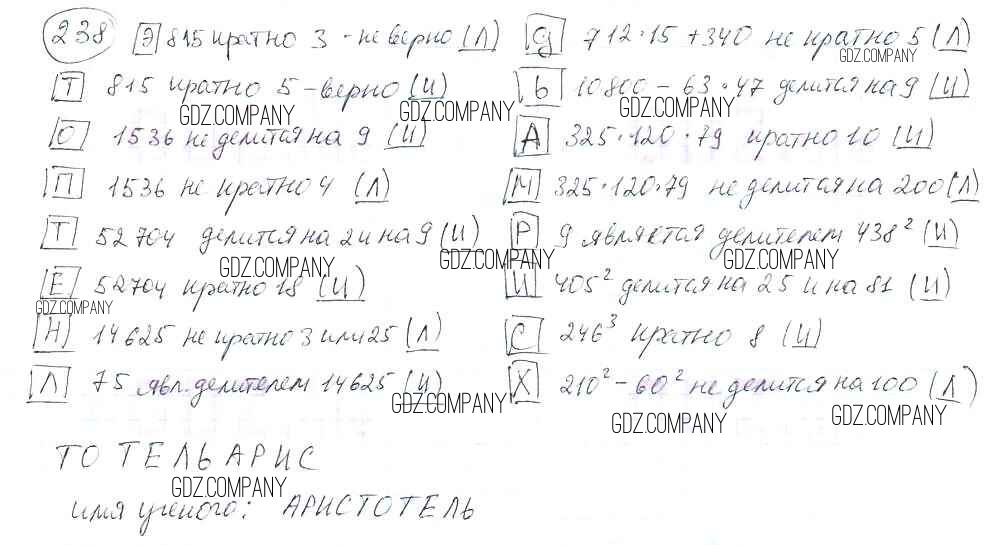 238 Э 815 кратно 3 - не верно (Л)
Т 815 кратно 5 - верно (И)
GDZ.COMPANY
О 1536 не делится на 9 (И)
П 1536 не кратно 4 (Л)
Т 52704 делится на 2 и на 9 (И)
GDZ.COMPANY
Е 52704 кратно 18 (И)
GDZ.COMPANY
Н 14625 не кратно 3 или 25 (Л)
Л 75 явл. делителем 14625 (И)
GDZ.COMPANY
712·15 + 340 не кратно 5 (Л)
GDZ.COMPANY
Ь 10800 - 63·47 делится на 9 (И)
GDZ.COMPANY
GDZ.COMPANY
А 325·120·79 кратно 10 (И)
М 325·120·79 не делится на 200 (Л)
Р 9 является делителем 438² (И)
GDZ.COMPANY
GDZ.COMPANY
И 405² делится на 25 и на 81 (И)
С 246³ кратно 8 (И)
Х 210² - 60² не делится на 100 (Л)
GDZ.COMPANY
ТО ТЕЛЬ АРИС
GDZ.COMPANY
имя ученого: АРИСТОТЕЛЬ